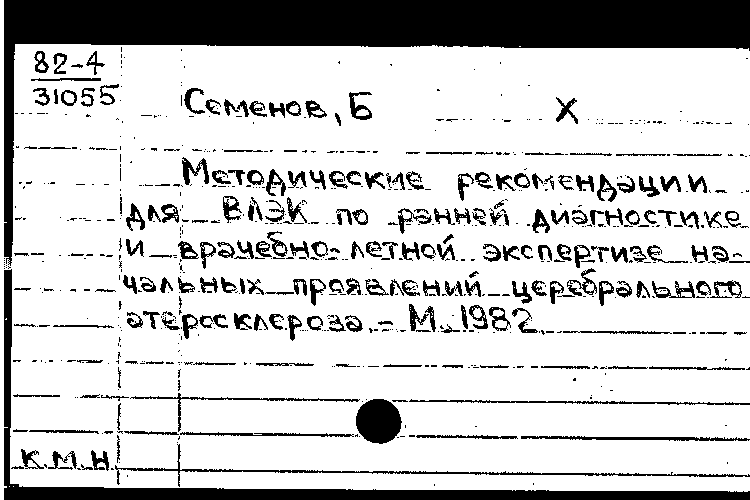 82-4
31055
Семенов, Б X
Методические рекомендации
для ВЛЭК по ранней диагностике
и врачебно-летной экспертизе на-
чальных проявлений церебрального
атеросклероза. - М., 1982.
К.М.Н.